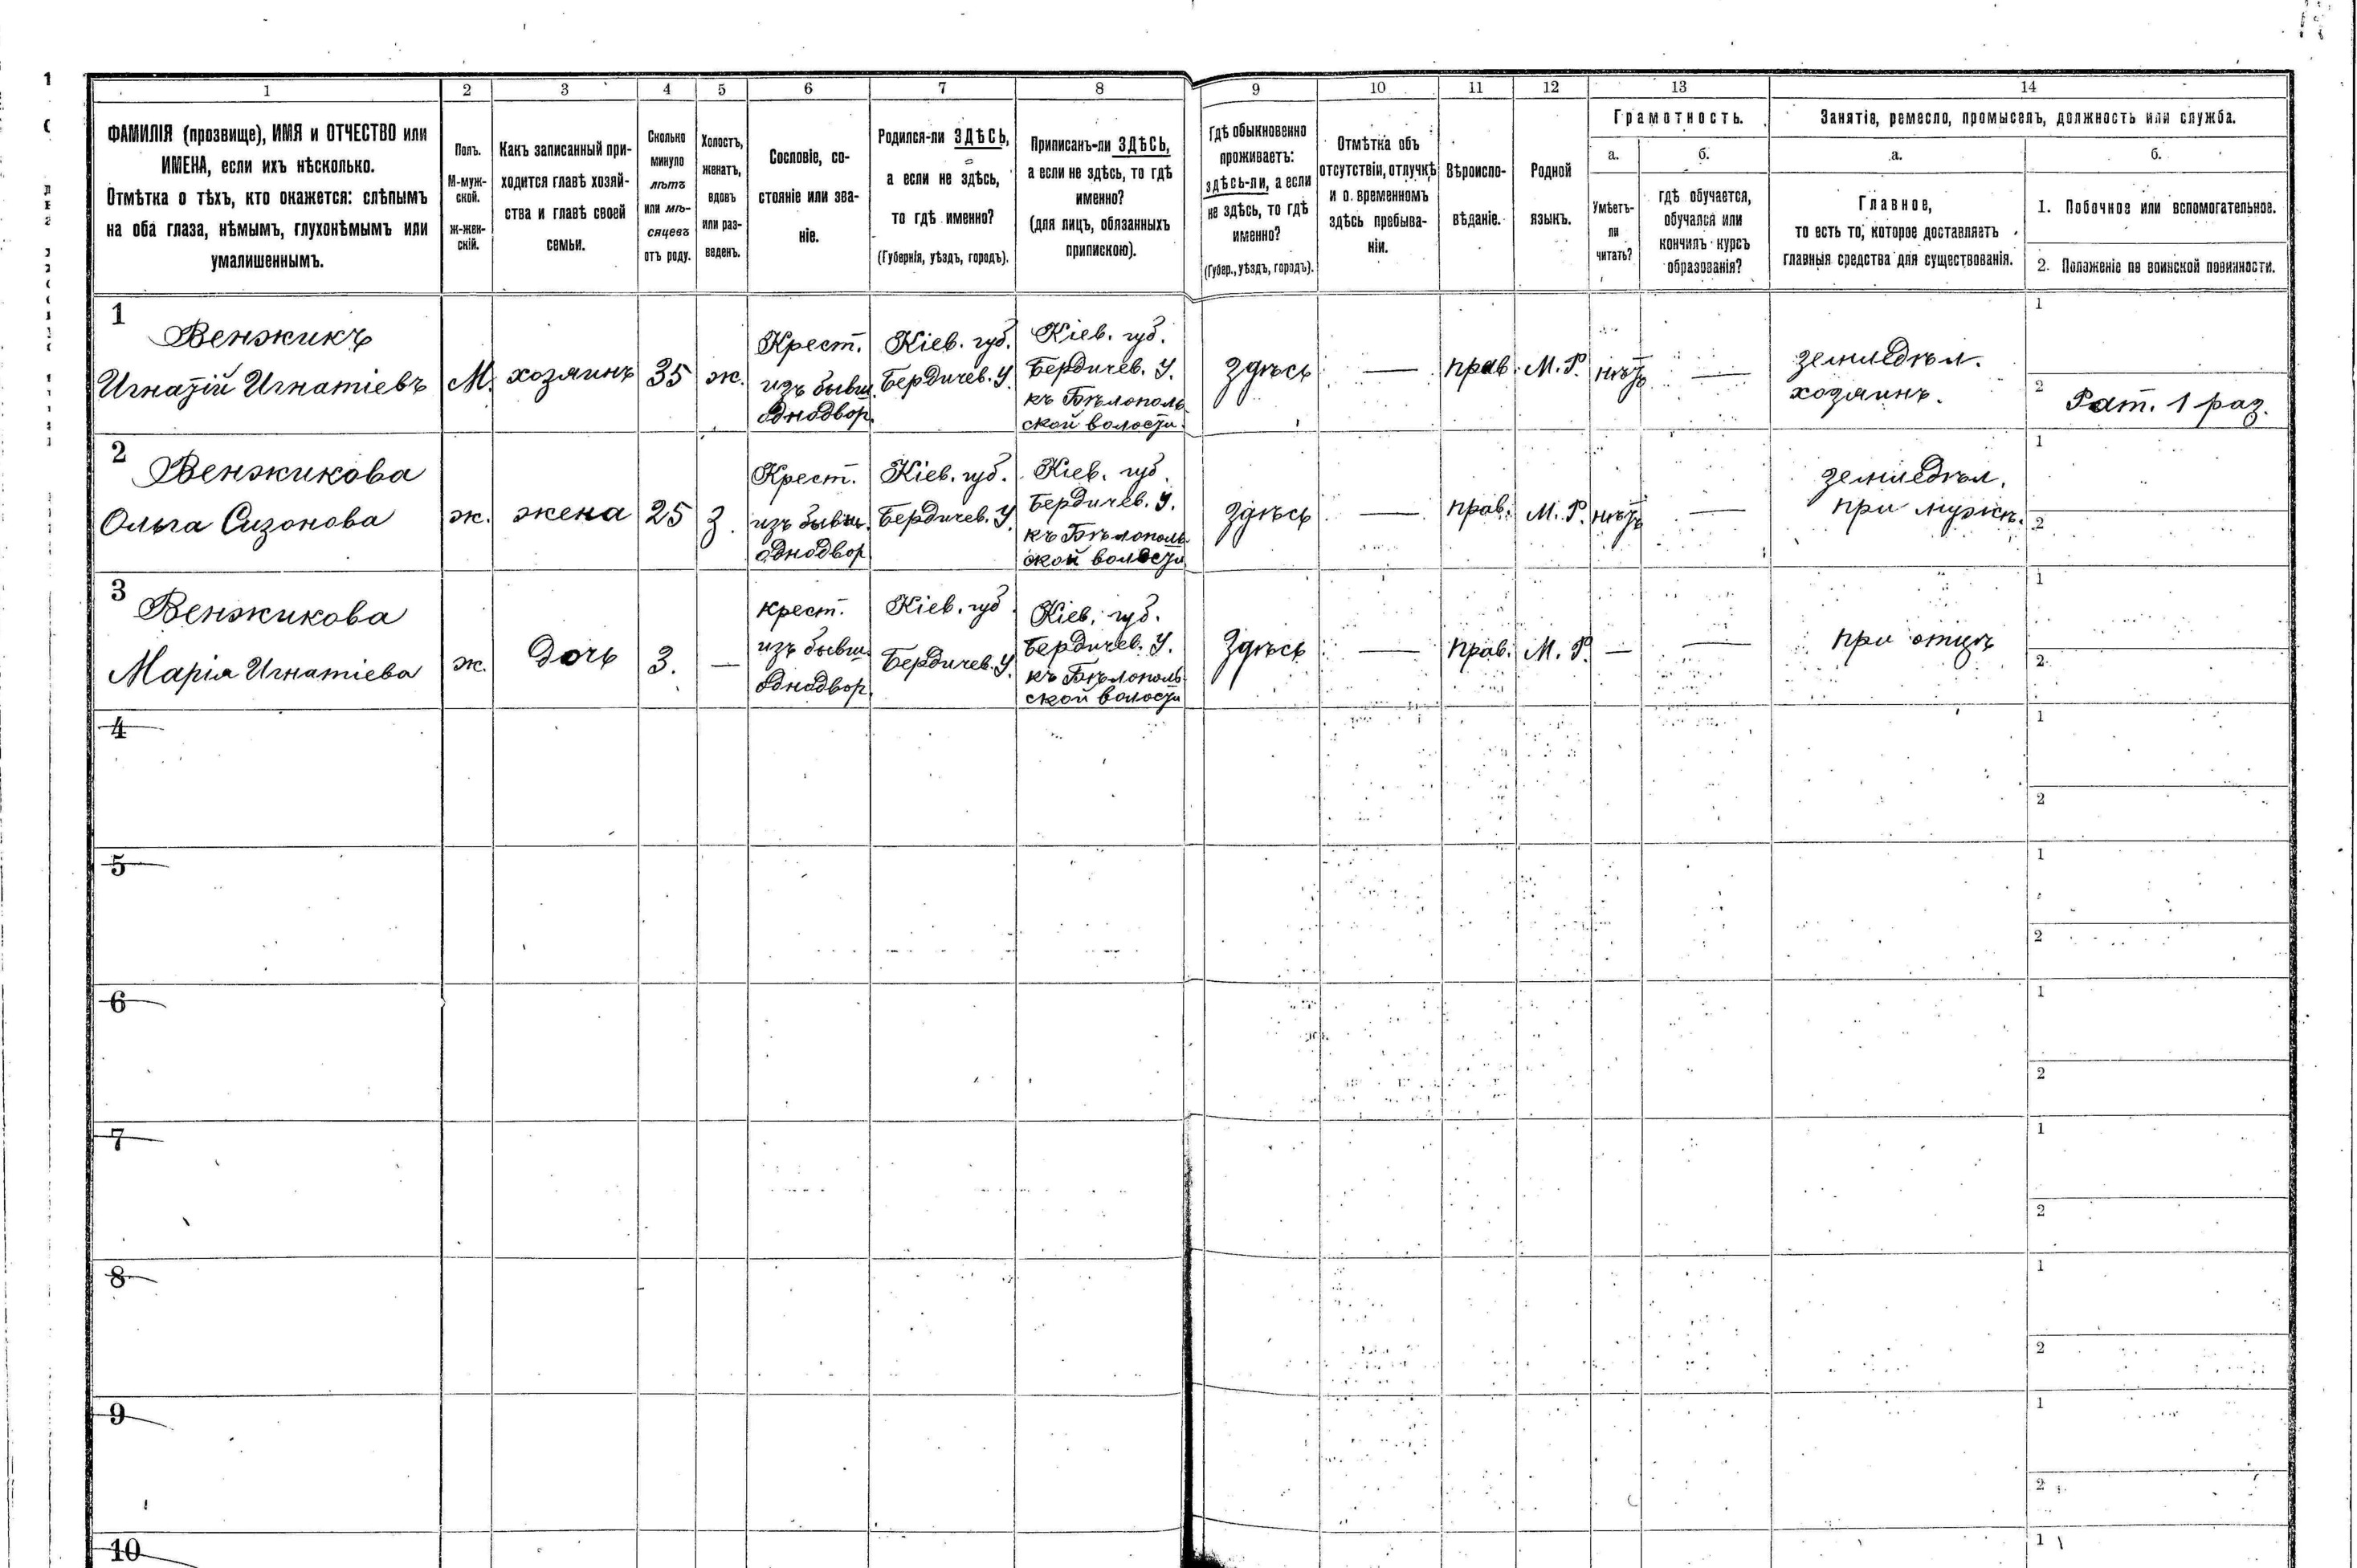 1 2 3 4 5 6 7 8 9 10 11 12 13 14
ФАМИЛІЯ (прозвище), ИМЯ и ОТЧЕСТВО или
ИМЕНА, если ихъ нѣсколько.
Отмѣтка о тѣхъ, кто окажется: слѣпымъ
на оба глаза, нѣмымъ, глухонѣмымъ или
умалишеннымъ.
Полъ.
М-муж-
ской.
ж-жен-
скій.
Какъ записанный при-
ходится главѣ хозяй-
ства и главѣ своей
семьи.
Сколько
минуло
лѣтъ
или мѣ-
сяцевъ
отъ роду.
Холостъ,
женатъ,
вдовъ
или раз-
веденъ.
Сословіе, со-
стояніе или зва-
ніе.
Родился-ли ЗДѢСЬ,
а если не здѣсь,
то гдѣ именно?
(Губернія, уѣздъ, городъ).
Приписанъ-ли ЗДѢСЬ,
а если не здѣсь, то гдѣ
именно?
(для лицъ, обязанныхъ
припискою).
Гдѣ обыкновенно
проживаетъ:
здѣсь-ли, а если
не здѣсь, то гдѣ
именно?
(Губер., уѣздъ, городъ).
Отмѣтка объ
отсутствіи, отлучкѣ
и о временномъ
здѣсь пребыва-
ніи.
Вѣроиспо-
вѣданіе.
Родной
языкъ.
Грамотность.
а.
Умѣетъ-
ли
читать?
б.
гдѣ обучается,
обучался или
кончилъ курсъ
образованія?
Занятіе, ремесло, промыселъ, должность или служба.
а.
Главное,
то есть то, которое доставляетъ
главныя средства для существованія.
б.
1. Побочное или вспомогательное.
2. Положеніе по воинской повинности.
1
Венжикъ
Игнатій Игнатіевъ
М.
хозяинъ
35
ж.
Крест.
изъ бывш.
однодвор.
Кіев. губ.
Бердичев. У.
Кіев. губ.
Бердичев. У.
къ Бѣлополь
ской волости.
Здѣсь
—
прав.
М. Р.
нѣтъ
—
земледѣл.
хозяинъ.
1
2 Рат. 1 раз.
2
Венжикова
Ольга Сизонова
ж.
жена
25
З.
Крест.
изъ бывш.
однодвор
Кіев. губ.
Бердичев. У.
Кіев. губ.
Бердичев. У.
къ Бѣлополь
ской волости
Здѣсь
—
прав.
М. Р.
нѣтъ
—
земледѣл.
при мужѣ.
1
2
3
Венжикова
Марія Игнатіева
ж.
дочь
3.
—
крест.
изъ бывш.
однодвор.
Кіев. губ
Бердичев. У.
Кіев. губ.
Бердичев. У.
къ Бѣлополь
ской волости
Здѣсь
—
прав.
М. Р.
—
—
при отцѣ
1
2
4
1
2
5
1
2
6
1
2
7
1
2
8
1
2
9
1
2
10
1